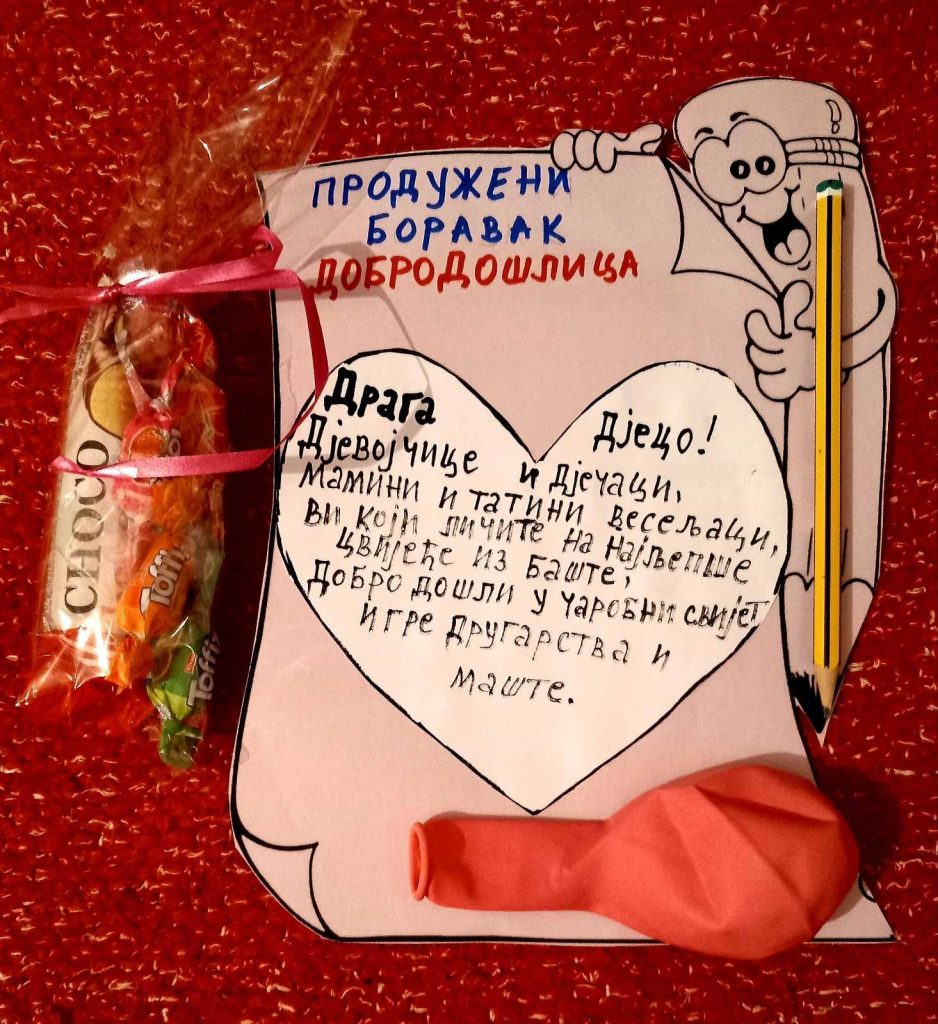 ПРОДУЖЕНИ
БОРАВАК
ДОБРОДОШЛИЦА
Драга Дјецо!
Дјевојчице и дјечаци,
мамини и татини весељаци,
ви који личите на најљепше
цвијеће из баште,
Добро дошли у чаробни свијет
игре другарства и
маште.
CHOCO
Toffi
Toffi